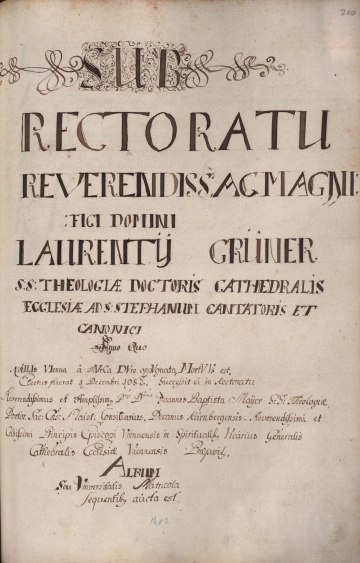 210
SUB
RECTORATU
REVERENDISS: AC MAGNI:
:FICI DOMINI
LAURENTIJ GRÜNER
S.S: THEOLOGIÆ DOCTORIS CATHEDRALIS
ECCLESIÆ AD S. STEPHANUM CANTATORIS ET
CANONICI
Anno Quo
Vienna à est,
Electus fuerat 4 Decembr Successit ei in Rectoratu
Reverendissimus et Amplissim, Dn. Dn. Joannes Baptista Mayer S.S. Theologiæ
Doctor, Sac: Cæs: Maiest: Consiliarius, Decanus Kürnbergensis: Reverendissimi et
Celsissimi Principis Episcopi Viennensis in Spiritualib, Vicarius Generalis
Cathedralis Ecclesiæ Viennensis Præposit,
ALBUM
Seu Universitatis Matricola
sequentib, aucta est.